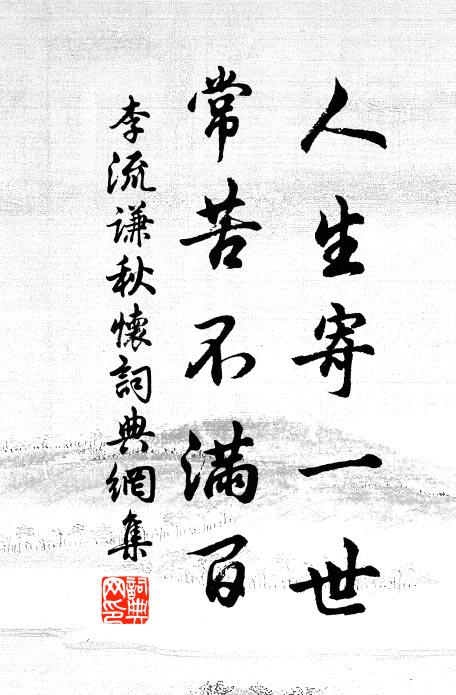 人生寄一世
常苦不滿百
李流謙秋懷詞典網集
詞典
网印